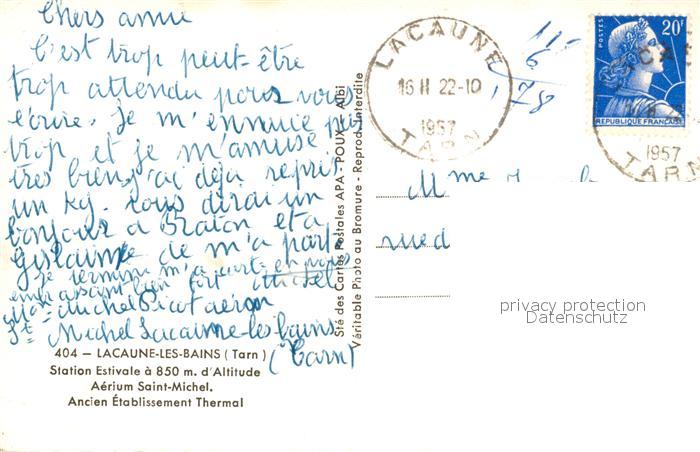 Chers amie
C'est trop peut-être
trop attendu pour vous
écrire. Je m'ennuie pas
trop et je m'amuse
très bien j'ai déjà repris
un kg. vous dirai un
bonjour a et a
Gislaine de m'a part
je termine m'a carte en vous
embrassant bien fort Michel
Mon Michel Picot aérium
St-Michel Lacaune-les-bains
(Tarn)
404 — LACAUNE-LES-BAINS (Tarn)
Station Estivale à 850 m. d'Altitude
Aérium Saint-Michel.
Ancien Établissement Thermal
Sté des Cartes Postales APA - POUX - Albi
Véritable Photo au Bromure - Reprod. Interdite
LACAUNE
16 II 22-10
1957
TARN
POSTES
20F
REPUBLIQUE FRANÇAISE
1957
TARN
Mme
rue d
privacy protection
Datenschutz